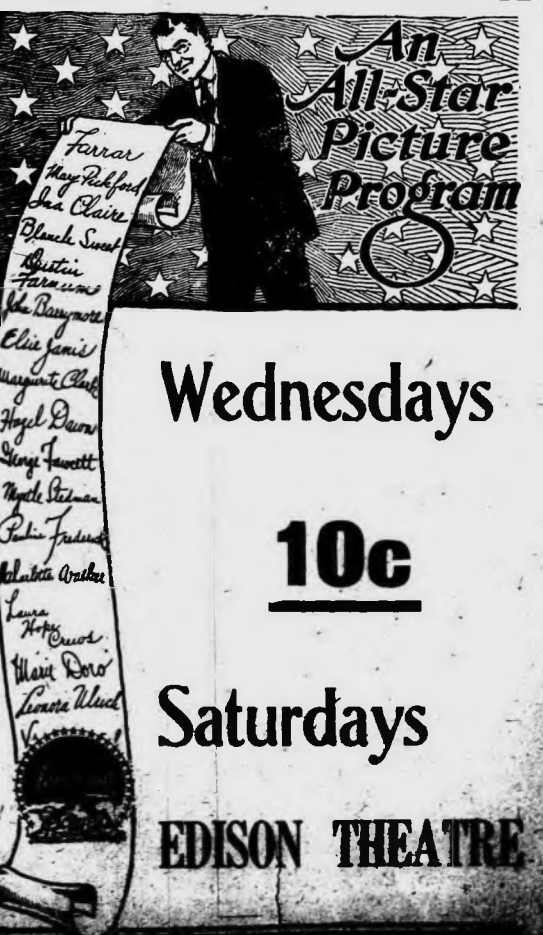 An
All-Star
Picture
Program
Farrar
Mary Pickford
Ina Claire
Blanche Sweet
Dustin
Farnum
John Barrymore
Elsie Janis
Marguerite Clark
Hazel Dawn
George Fawcett
Myrtle Stedman
Pauline Frederick
Charlotte Walker
Laura
Hope
Crews
Marie Doro
Leonora Ulrich
Wednesdays
10c
Saturdays
EDISON THEATRE